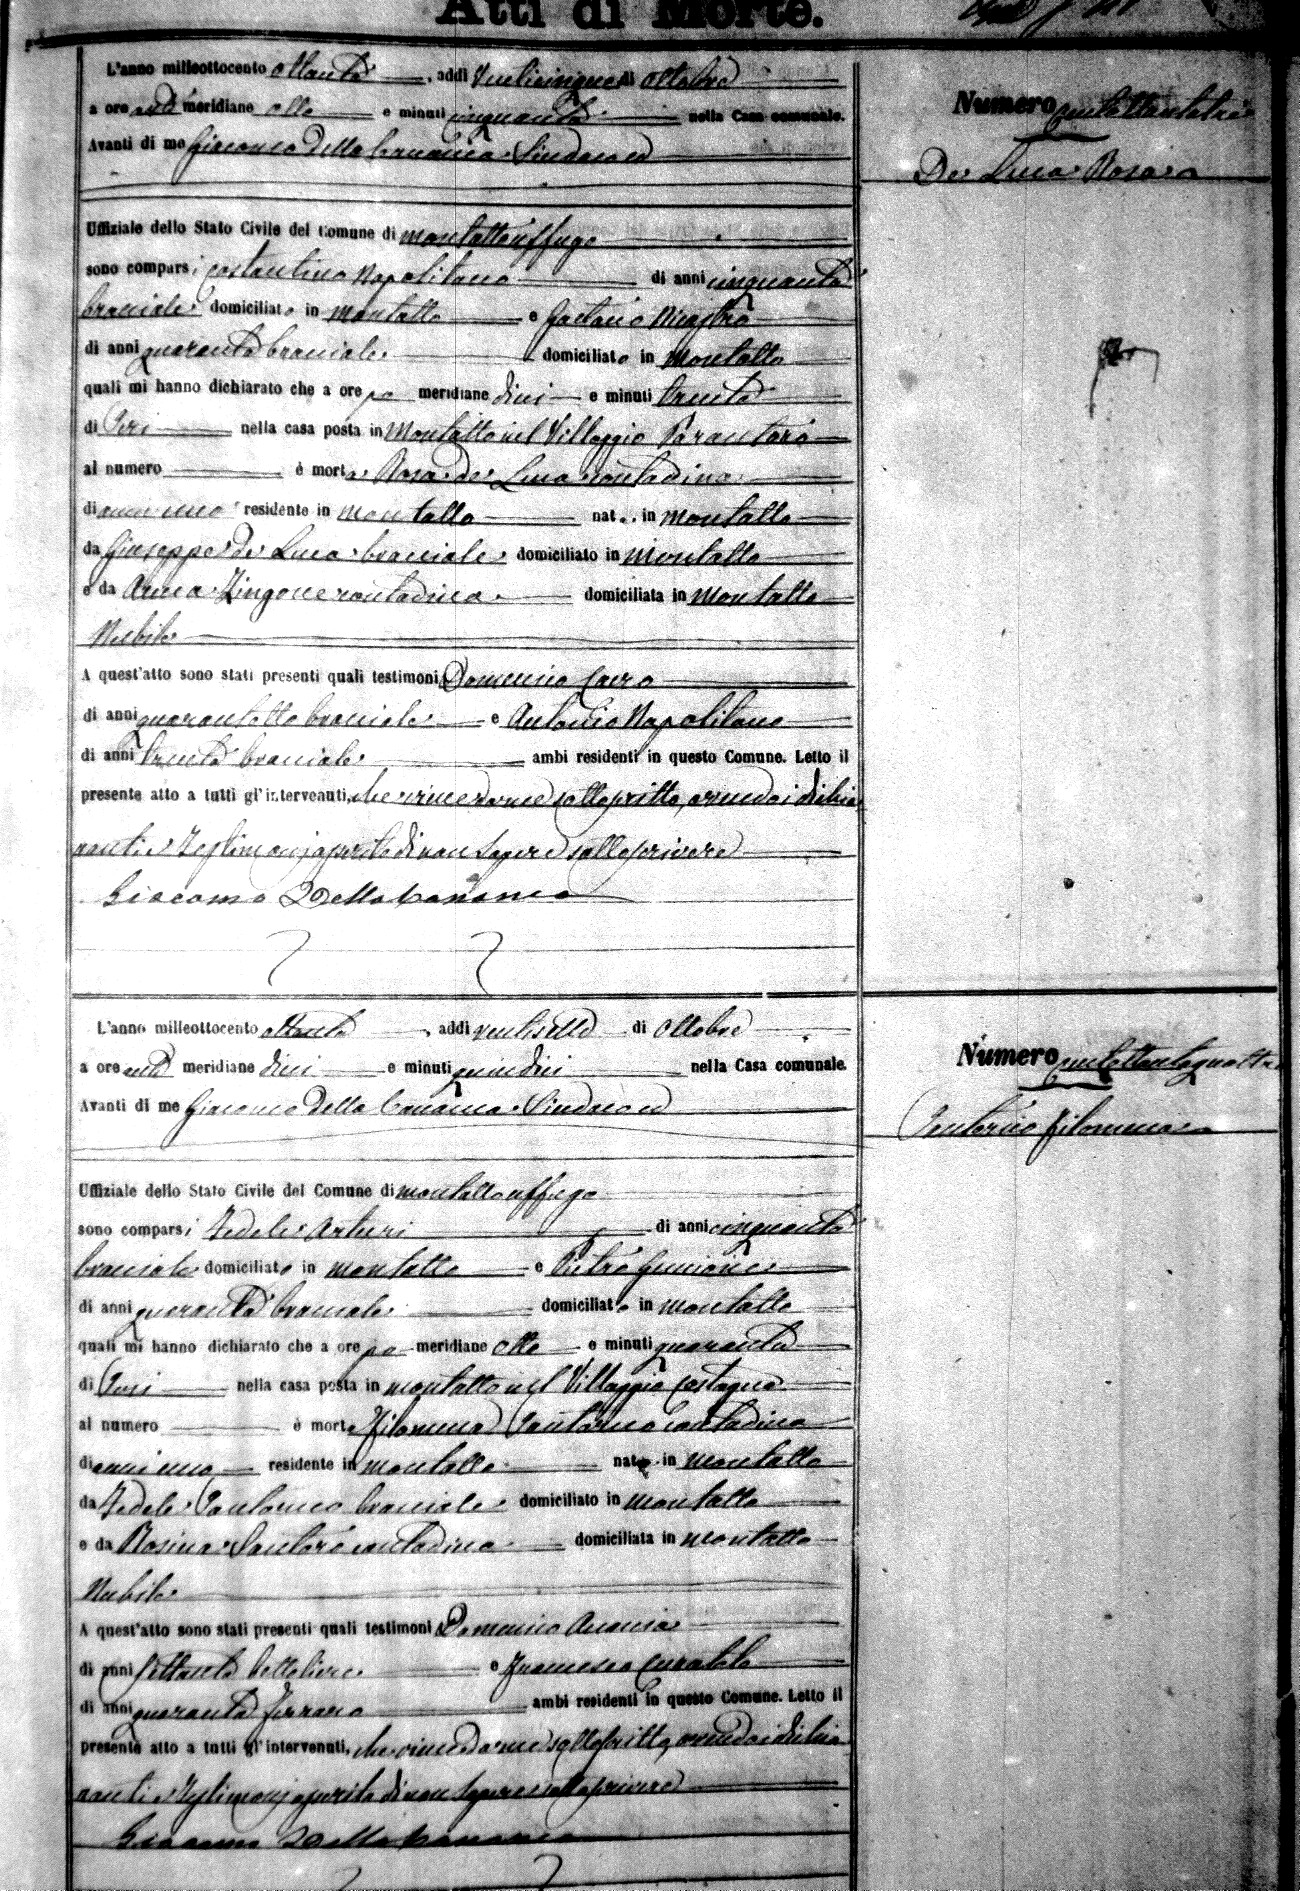 Atti di Morte.
L'anno milleottocento ottanta, addì venticinque di ottobre
a ore anti meridiane otto e minuti cinquanta nella Casa comunale.
Avanti di me Giacomo Della Cananea Sindaco ed
Numero centottantatre
De Luca Rosa
Uffiziale dello Stato Civile del Comune di Montalto Uffugo
sono comparsi Costantino Napolitano di anni cinquanta
bracciale domiciliato in Montalto e Gaetano
di anni quaranta bracciale domiciliato in Montalto
quali mi hanno dichiarato che a ore po meridiane dieci e minuti trenta
di Ieri nella casa posta in Montalto nel Villaggio Parantoro
al numero è morta Rosa de Luca contadina
di anni uno residente in Montalto nat.. in Montalto
da Giuseppe de Luca bracciale domiciliato in Montalto
e da Anna Zingone contadina domiciliata in Montalto
Nubile
A quest'atto sono stati presenti quali testimoni Domenico Cairo
di anni quarantotto bracciale e Antonio Napolitano
di anni trenta bracciale ambi residenti in questo Comune. Letto il
presente atto a tutti gl'intervenuti, che viene da me sottoscritto, avendo i dichia
ranti e testimonj asserito di non sapere sottoscrivere
Giacomo Della Cananea
L'anno milleottocento ottanta, addì ventisette di ottobre
a ore anti meridiane dieci e minuti quindici nella Casa comunale.
Avanti di me Giacomo Della Cananea Sindaco ed
Numero centottantaquattro
Santorno Filomena
Uffiziale dello Stato Civile del Comune di Montalto Uffugo
sono comparsi Fedele Arturi di anni cinquanta
bracciale domiciliato in Montalto e Pietro
di anni quaranta bracciale domiciliato in Montalto
quali mi hanno dichiarato che a ore po meridiane otto e minuti quaranta
di Ieri nella casa posta in Montalto nel Villaggio Castagna
al numero è morta Filomena contadina
di anni uno residente in Montalto nata in Montalto
da Fedele bracciale domiciliato in Montalto
e da Rosina Santoro contadina domiciliata in Montalto
Nubile
A quest'atto sono stati presenti quali testimoni Domenico Anania
di anni settanta bettoliere e Francesco Curatolo
di anni quaranta ferraro ambi residenti in questo Comune. Letto il
presente atto a tutti gl'intervenuti, che viene da me sottoscritto, avendo i dichia
ranti e testimonj asserito di non sapere sottoscrivere
Giacomo Della Cananea